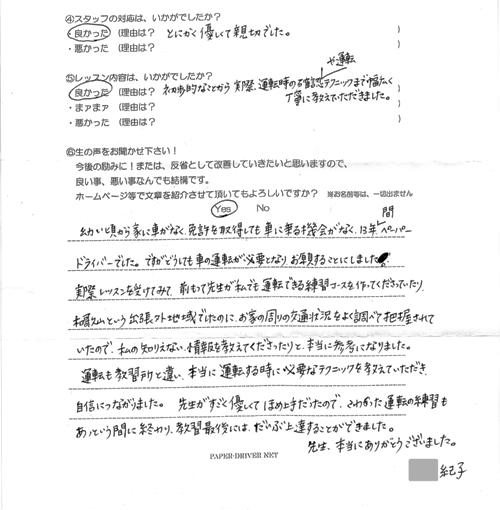 ④スタッフの対応は、いかがでしたか?
・良かった (理由は? とにかく優しくて親切でした。 )
・悪かった (理由は? )
⑤レッスン内容は、いかがでしたか?
や運転
・良かった (理由は? 初歩的なことから実際、運転時の確認テクニックまで幅広く
丁寧に教えていただきました。 )
・まァまァ (理由は? )
・悪かった (理由は? )
⑥生の声をお聞かせ下さい!
今後の励みに!または、反省として改善していきたいと思いますので、
良い事、悪い事なんでも結構です。
ホームページ等で文章を紹介させて頂いてもよろしいですか? ※お名前等は、一切出ません
Yes No
間
幼い頃から家に車がなく、免許を取得しても車に乗る機会がなく、13年ペーパー
ドライバーでした。ですがどうしても車の運転が必要となり、お願いすることにしました
実際レッスンを受けてみて、前もって先生が私でも運転できる練習コースを作ってくださっていたり、
という出張外地域でしたのに、お家の周りの交通状況をよく調べて把握されて
いたので、私の知りえない情報を教えてくださったりと、本当に参考になりました。
運転も教習所と違い、本当に運転する時に必要なテクニックを教えていただき、
自信につながりました。先生がすごく優しくてほめ上手だったので、こわかった運転の練習も
あっという間に終わり、教習最後には、だいぶ上達することができました。
先生、本当にありがとうございました。
PAPER-DRIVER NET
紀子